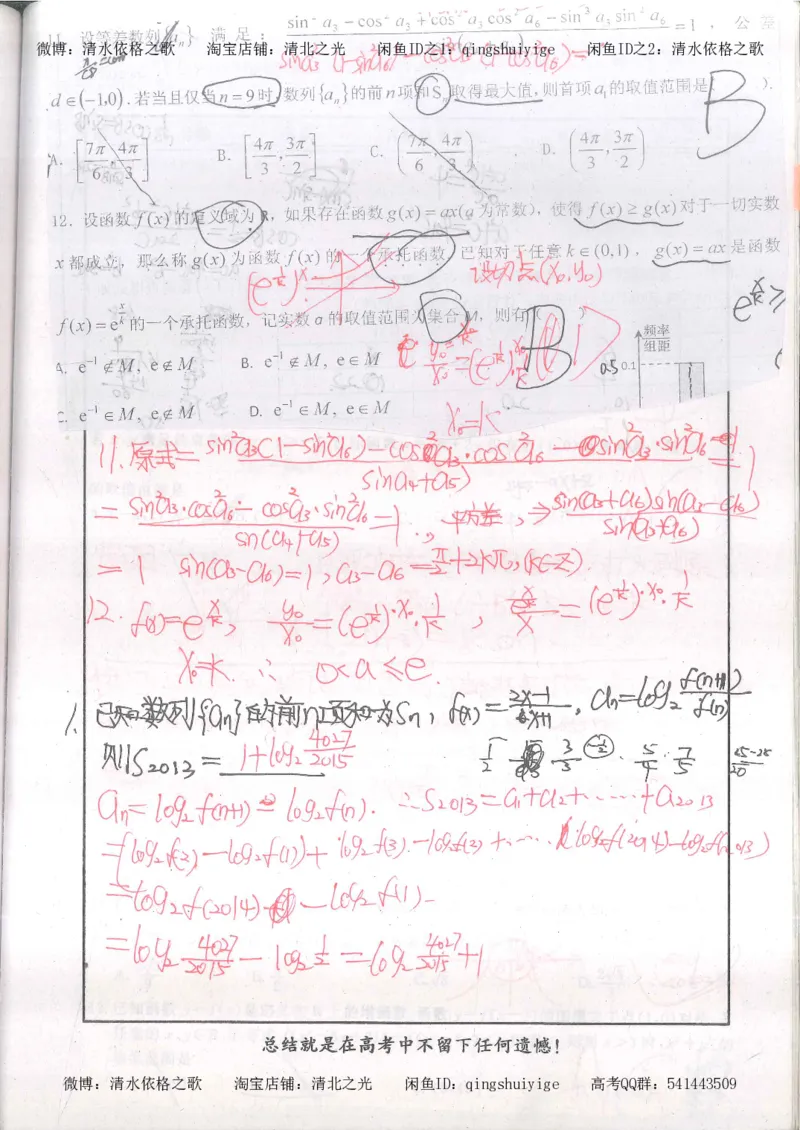 11. 设等差数列{aₙ} 满足: (sin² a₃ − cos² a₃ + cos² a₃ cos² a₆ − sin² a₃ sin² a₆)/ =1, 公差
微博: 清水依格之歌 淘宝店铺: 清北之光 闲鱼ID之1: qingshuiyige 闲鱼ID之2: 清水依格之歌
d∈(−1,0). 若当且仅当 n=9 时, 数列{aₙ}的前 n 项和 Sₙ 取得最大值, 则首项 a₁ 的取值范围是( ).
B
A. [7π/6, 4π/3] B. [4π/3, 3π/2] C. (7π/6, 4π/3) D. (4π/3, 3π/2)
12. 设函数 f(x) 的定义域为 R, 如果存在函数 g(x)=ax(a 为常数), 使得 f(x)≥g(x) 对于一切实数
x 都成立, 那么称 g(x) 为函数 f(x) 的一个承托函数. 已知对于任意 k∈(0,1), g(x)=ax 是函数
(e^(1/k))^x 设切点(x₀,y₀)
f(x)=e^(x/k) 的一个承托函数, 记实数 a 的取值范围为集合 M, 则有( )
B
频率
组距
0.5 0.1
A. e⁻¹∉M, e∉M B. e⁻¹∉M, e∈M
C. e⁻¹∈M, e∉M D. e⁻¹∈M, e∈M
x₀=k
11. 原式= (sin²a₃(1−sin²a₆)−cos²a₃·cos²a₆ − sin²a₃·sin²a₆)/sin(a₄+a₅) =1
= (sin²a₃·cos²a₆ − cos²a₃·sin²a₆)/sin(a₄+a₅) =1, 平方差, ⇒ sin(a₃+a₆)sin(a₃−a₆)/sin(a₃+a₆)
=1 sin(a₃−a₆)=1, a₃−a₆=π/2+2kπ,(k∈z)
12. f(x)=e^(x/k), y₀/x₀=(e^(1/k))^x₀·1/k, e^(x/k)/x=(e^(1/k))^x₀·1/k
x₀=k. ∴ 0<a≤e.
1. 已知数列{aₙ}的前n项和为Sₙ, f(x)=(2x−1)/(x+1), aₙ=log₂ f(n+1)/f(n)
则S₂₀₁₃= 1+log₂ 4027/2015
aₙ=log₂f(n+1) − log₂f(n). ∴S₂₀₁₃=a₁+a₂+……+a₂₀₁₃
=(log₂f(2)−log₂f(1))+log₂f(3)−log₂f(2)+……(log₂f(2014)−log₂f(2013))
=log₂f(2014) − log₂f(1)
=log₂ 4027/2015 − log₂ 1/2 = log₂ 4027/2015 +1
总结就是在高考中不留下任何遗憾!
微博: 清水依格之歌 淘宝店铺: 清北之光 闲鱼ID: qingshuiyige 高考QQ群: 541443509